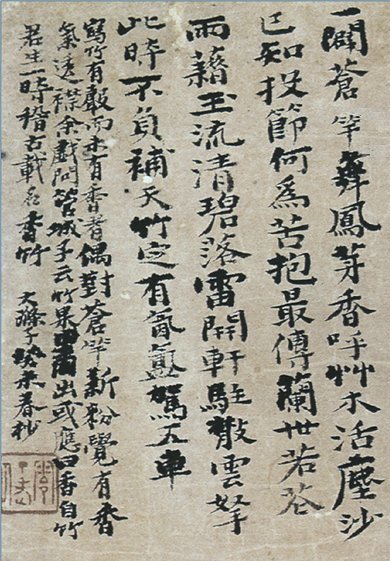 一闢蒼竿舞鳳芽香呼艸木活塵沙
已知投節何為苦抱最傳蘭世若花
雨藉玉流清碧落雷開軒駐散雲拏
此時不負補天竹定有氤氳駕五車
寫竹有聲而未有香者偶對蒼竿新粉覺有香
氣透襟余戲問管城子云竹果出或應曰香自竹
君生一時稽古載名香竹 大滌子癸未春杪